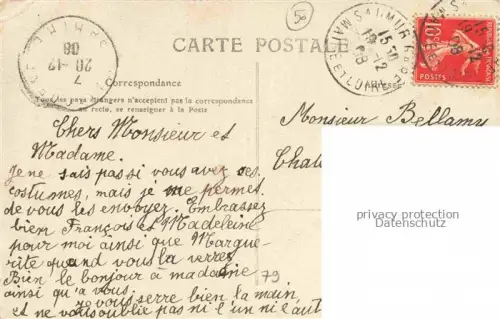 50
CARTE POSTALE
Correspondance
Tous les pays étrangers n'acceptent pas la correspondance
au recto, se renseigner à la Poste
ADRESSE
SAUMUR
MAINE-ET-LOIRE
15 30
19-12
08
7
20-12
08
10
POSTES
Monsieur Bellamy
Chat
privacy protection
Datenschutz
Chers Monsieur et
Madame.
Je ne sais pas si vous avez ces
costumes, mais je me permet
de vous les envoyer. Embrassez
bien François et Madeleine
pour moi ainsi que Margue-
rite quand vous la verrez
Bien le bonjour à madame
ainsi qu'a vous.
je vous serre bien la main,
et ne vous oublie pas ni l'un ni l'aut
79